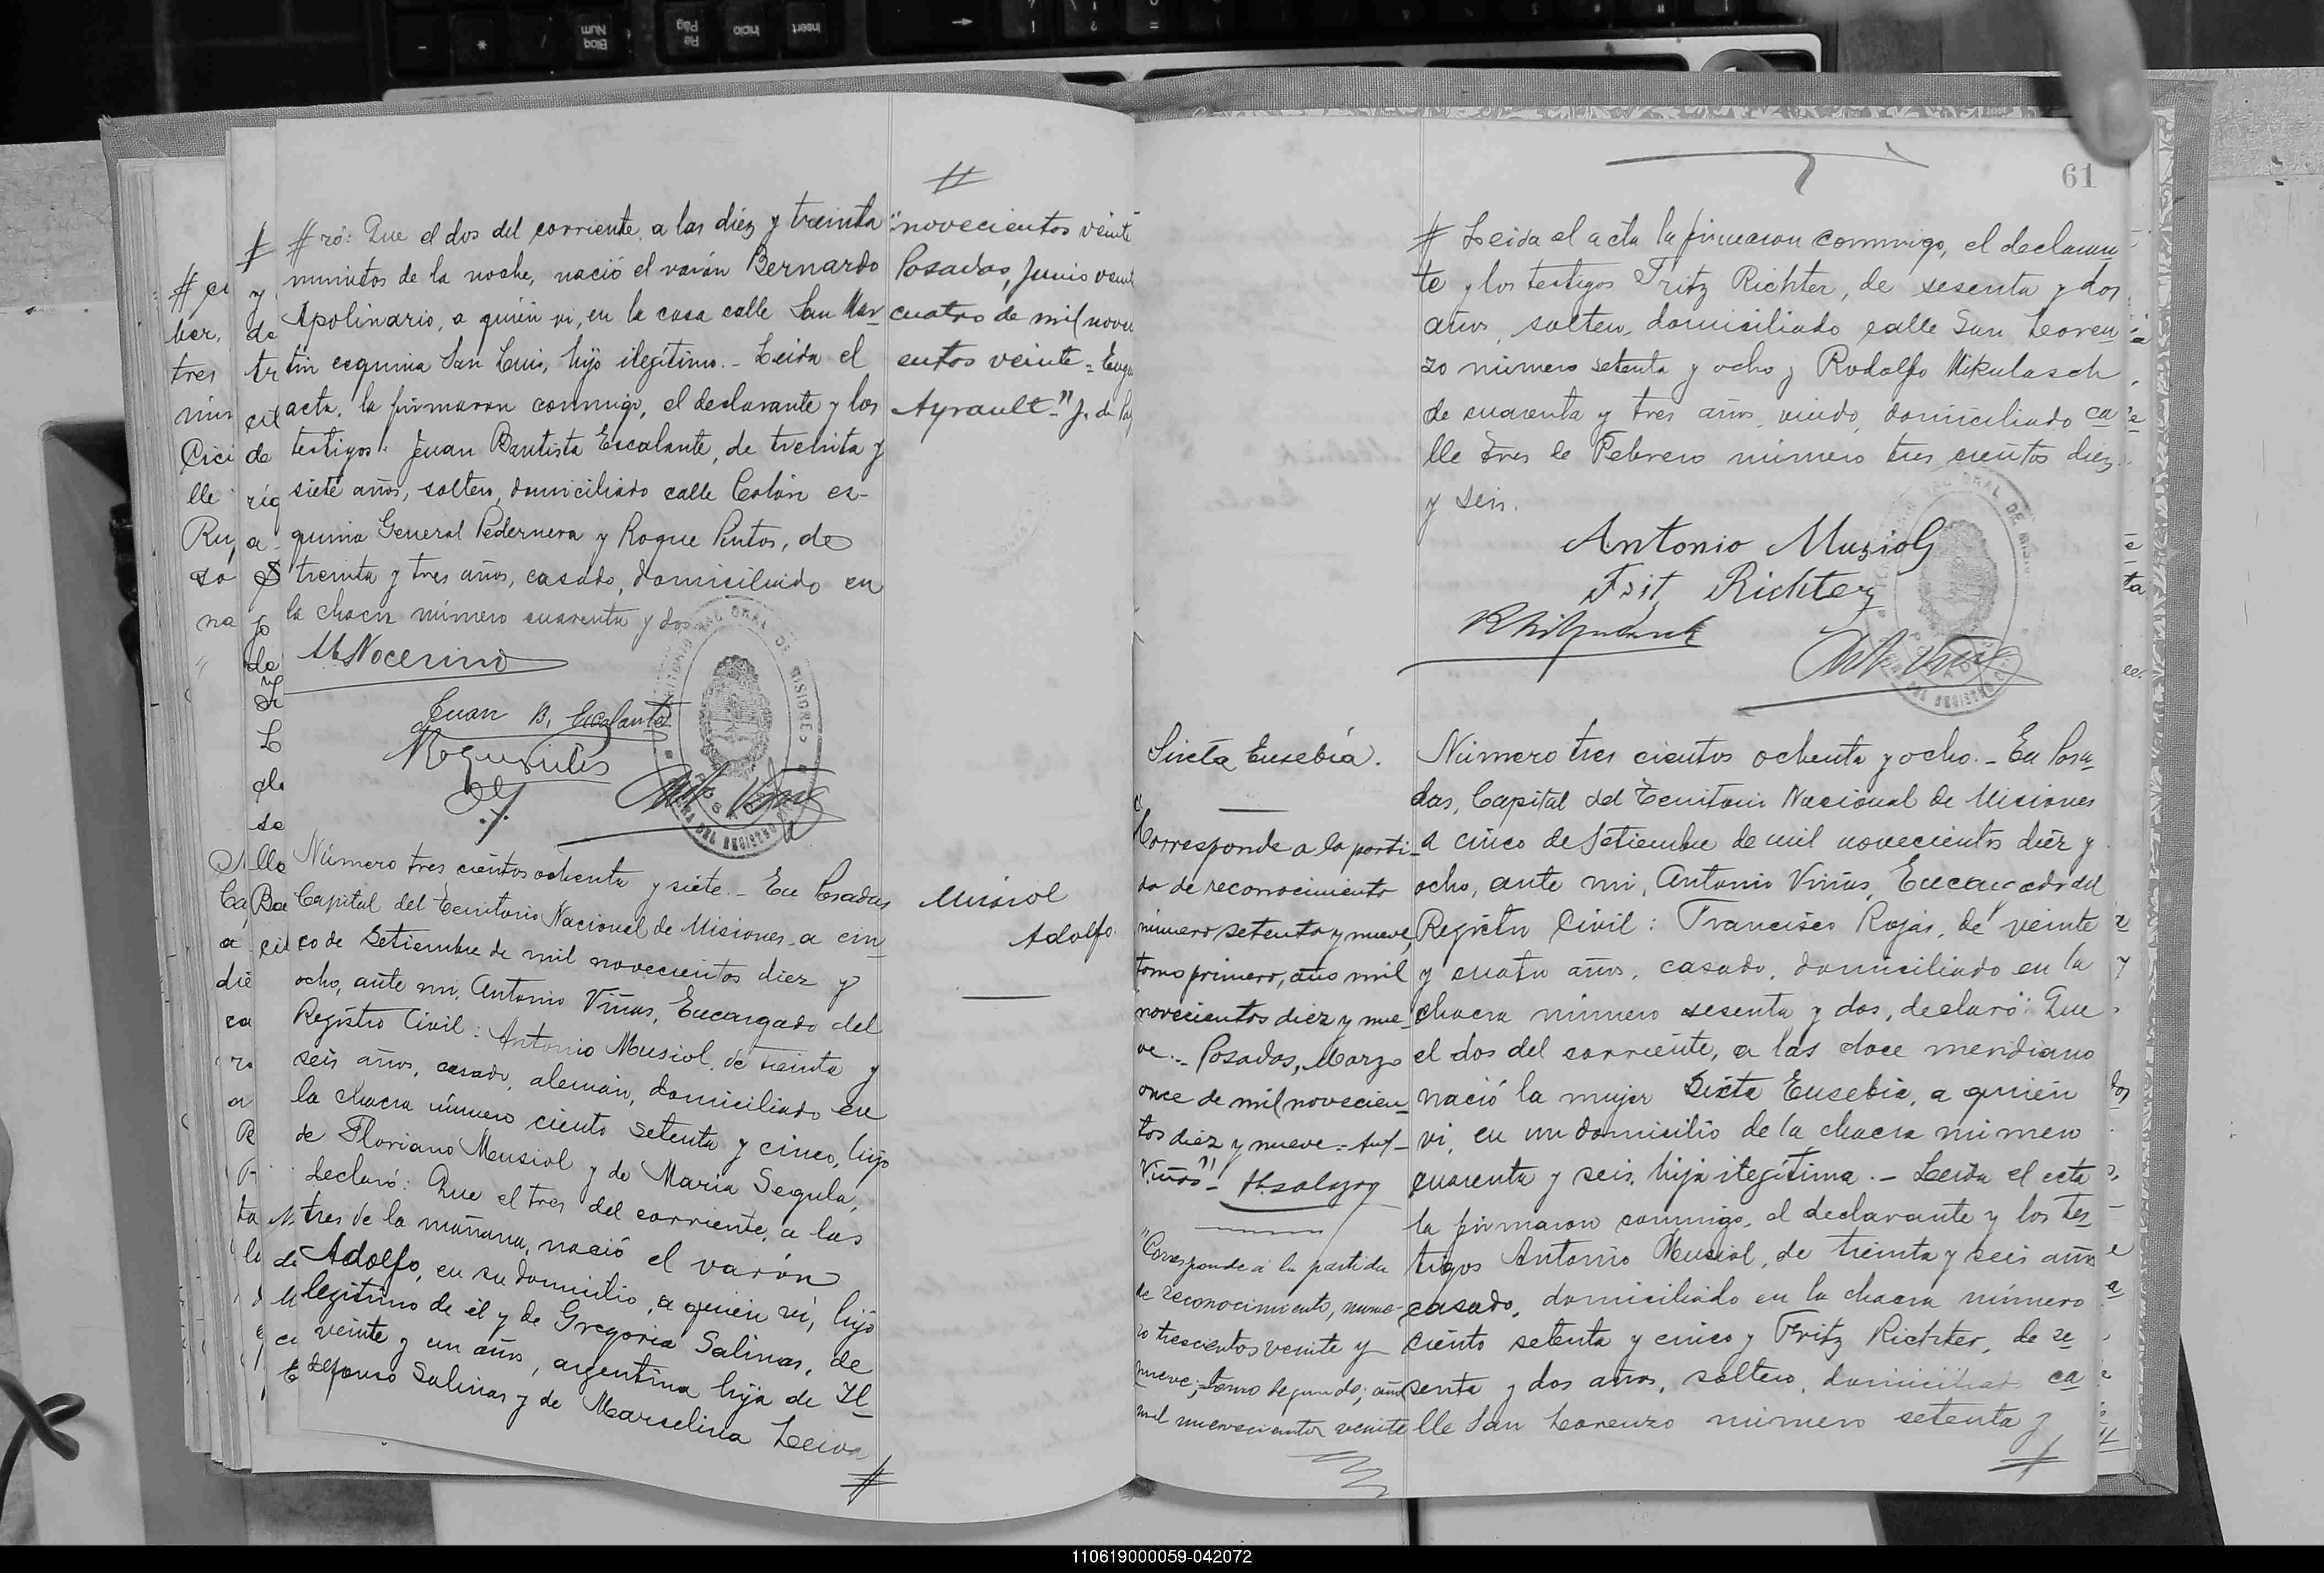 # ró: Que el dos del corriente, a las diez y treinta
minutos de la noche, nació el varón Bernardo
Apolinario, a quién vi, en la casa calle San Mar-
tin esquina San Luis, hijo ilegítimo.- Leida el
acta, la firmaron conmigo, el declarante y los
testigos: Juan Bautista Escalante, de treinta y
siete años, soltero, domiciliado calle Colón es-
quina General Pedernera y Roque Pintos, de
treinta y tres años, casado, domiciliado en
la chacra número cuarenta y dos
M. Nocerino
Juan B. Escalante
#
"novecientos veinte
Posadas, Junio vein
cuatro de mil nove
entos veinte = Eug
Ayrault-"
Número tres cientos ochenta y siete.- En Posadas
Capital del Territorio Nacional de Misiones, a cin-
co de Setiembre de mil novecientos diez y
ocho, ante mi, Antonio Viñas, Encargado del
Registro Civil: Antonio Musiol, de treinta y
seis años, casado, alemán, domiciliado en
la chacra número ciento setenta y cinco, hijo
de Floriano Musiol y de María Segula,
declaró: Que el tres del corriente, a las
tres de la mañana, nació el varón
Adolfo, en su domicilio, a quien vi, hijo
legítimo de él y de Gregoria Salinas, de
veinte y un años, argentina hija de Il-
defonso Salinas y de Marcelina Leiva
#
Musiol
Adolfo.
61
# Leida el acta la firmaron conmigo, el declaran-
te y los testigos Fritz Richter, de sesenta y dos
años, soltero, domiciliado calle San Loren
zo número setenta y ocho y Rodolfo Mikulasch
de cuarenta y tres años, viudo, domiciliado ca
lle tres de Febrero número tres cientos diez
y seis.
Antonio Musiol
Frit Richter
Sixta Eusebia.
Corresponde a la parti-
da de reconocimiento
número setenta y nueve,
tomo primero, año mil
novecientos diez y nue-
ve.- Posadas, Marzo
once de mil novecien-
tos diez y nueve = Ant-
Viñas"-
"Corresponde a la partida
de reconocimiento, núme-
ro trescientos veinte y
nueve, tomo segundo; año
mil novecientos veinte
Número tres cientos ochenta y ocho.- En Posa-
das, Capital del Territorio Nacional de Misiones
a cinco de Setiembre de mil novecientos diez y
ocho, ante mi, Antonio Viñas, Encargado del
Registro Civil: Francisco Rojas, de veinte
y cuatro años, casado, domiciliado en la
chacra número sesenta y dos, declaró: Que
el dos del corriente, a las doce meridiano
nació la mujer Sixta Eusebia, a quién
vi, en un domicilio de la chacra número
cuarenta y seis, hija ilegítima.- Leida el acta
la firmaron conmigo, el declarante y los tes-
tigos Antonio Musiol, de treinta y seis años
casado, domiciliado en la chacra número
ciento setenta y cinco y Fritz Richter, de se-
senta y dos años, soltero, domiciliado ca-
lle San Lorenzo número setenta y
#
110619000059-042072